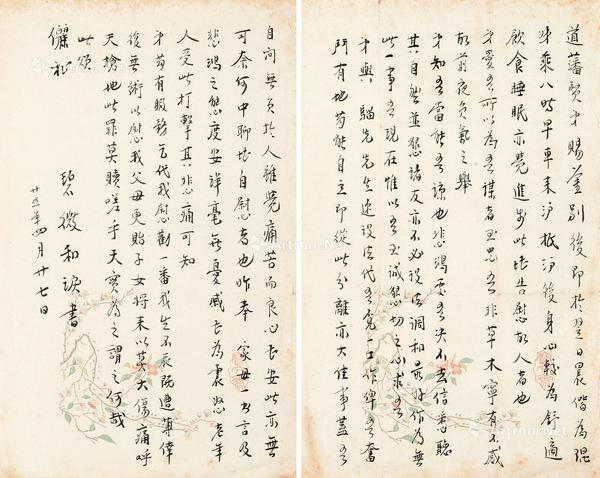 道藩賢弟賜鑒別後即於翌日晨偕為琨
弟乘八時早車來滬抵滬後身心較為舒適
飲食睡眠亦覺進步此堪告慰故人者也
弟愛吾所以為吾謀者至思吾非草木寧有不感
故前夜負氣之舉
弟知吾當能吾諒也悲鴻處吾決不去信悉聽
其自然並懇諸友亦不必設法調和最好作為無
此一事吾現在惟以吾至誠懇切之心求吾
弟與騮先先生速設法代吾覓一工作俾吾奮
鬥有地苟能自立即從此分離亦大佳事蓋吾
自問無負於人雖覺痛苦而良心長安此亦無
可奈何中聊堪自慰者也昨奉 家母書言及
悲鴻之態度 毫無憂戚 為震怒老年
人受此打擊其悲痛可知
弟苟有暇務乞代我慰勸一番我生不辰既遭薄倖
復無術以慰我父母更貽子女將來以莫大傷痛呼
天搶地此罪莫贖嗟乎天實為之謂之何哉
此頌
儷祉
碧微和淚書
廿五年四月廿七日
Artron.Net